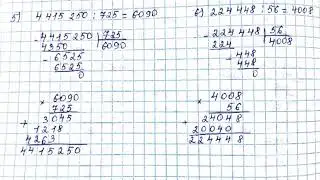 5) 4415250 : 725 = 6090
- 4415250 | 725
4350 | 6090
- 6525
6525
0
× 6090
725
3045
+ 1218
4263
4415250
6) 224448 : 56 = 4008
- 224448 | 56
224 | 4008
- 448
448
0
× 4008
56
+ 24048
20040
224448